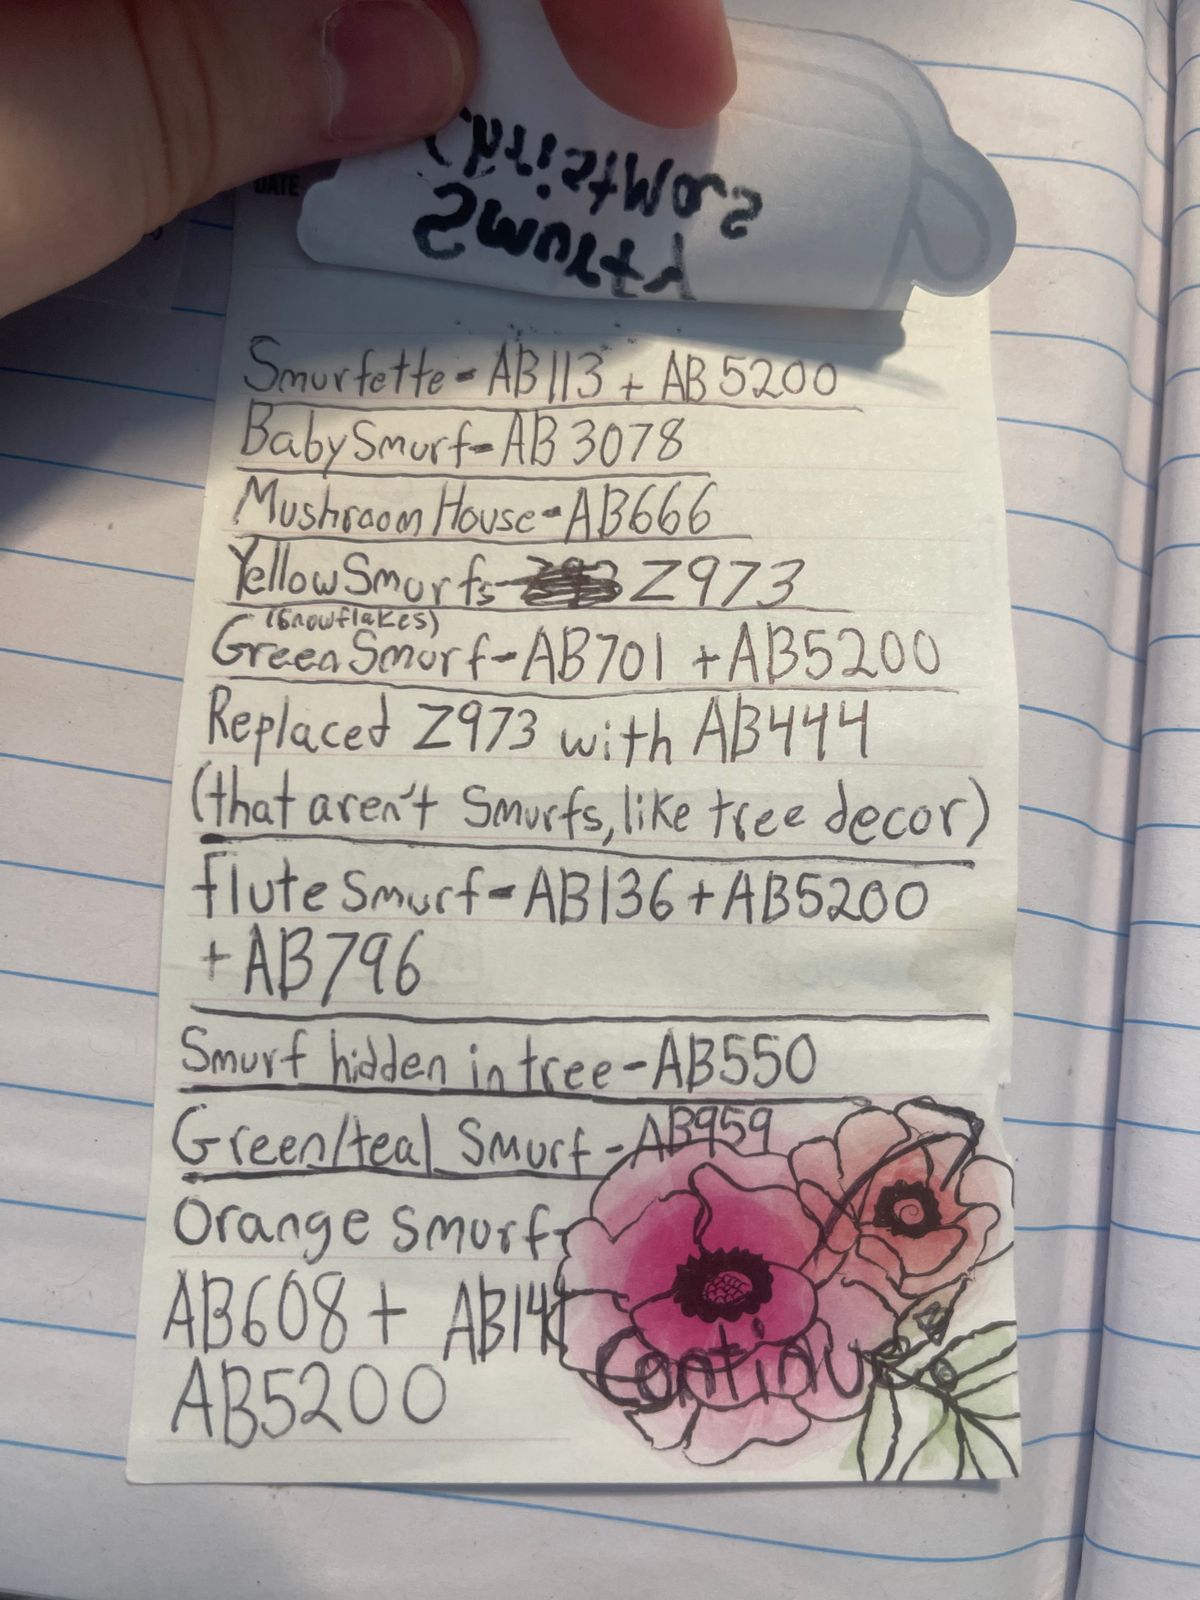 DATE
Smurfette - AB113 + AB5200
Baby Smurf - AB3078
Mushroom House - AB666
Yellow Smurfs - Z973
(Snowflakes)
Green Smurf - AB701 + AB5200
Replaced Z973 with AB444
(that aren't Smurfs, like tree decor)
Flute Smurf - AB136 + AB5200
+ AB796
Smurf hidden in tree - AB550
Green/teal Smurf - AB959
Orange Smurf -
AB608 +
AB5200